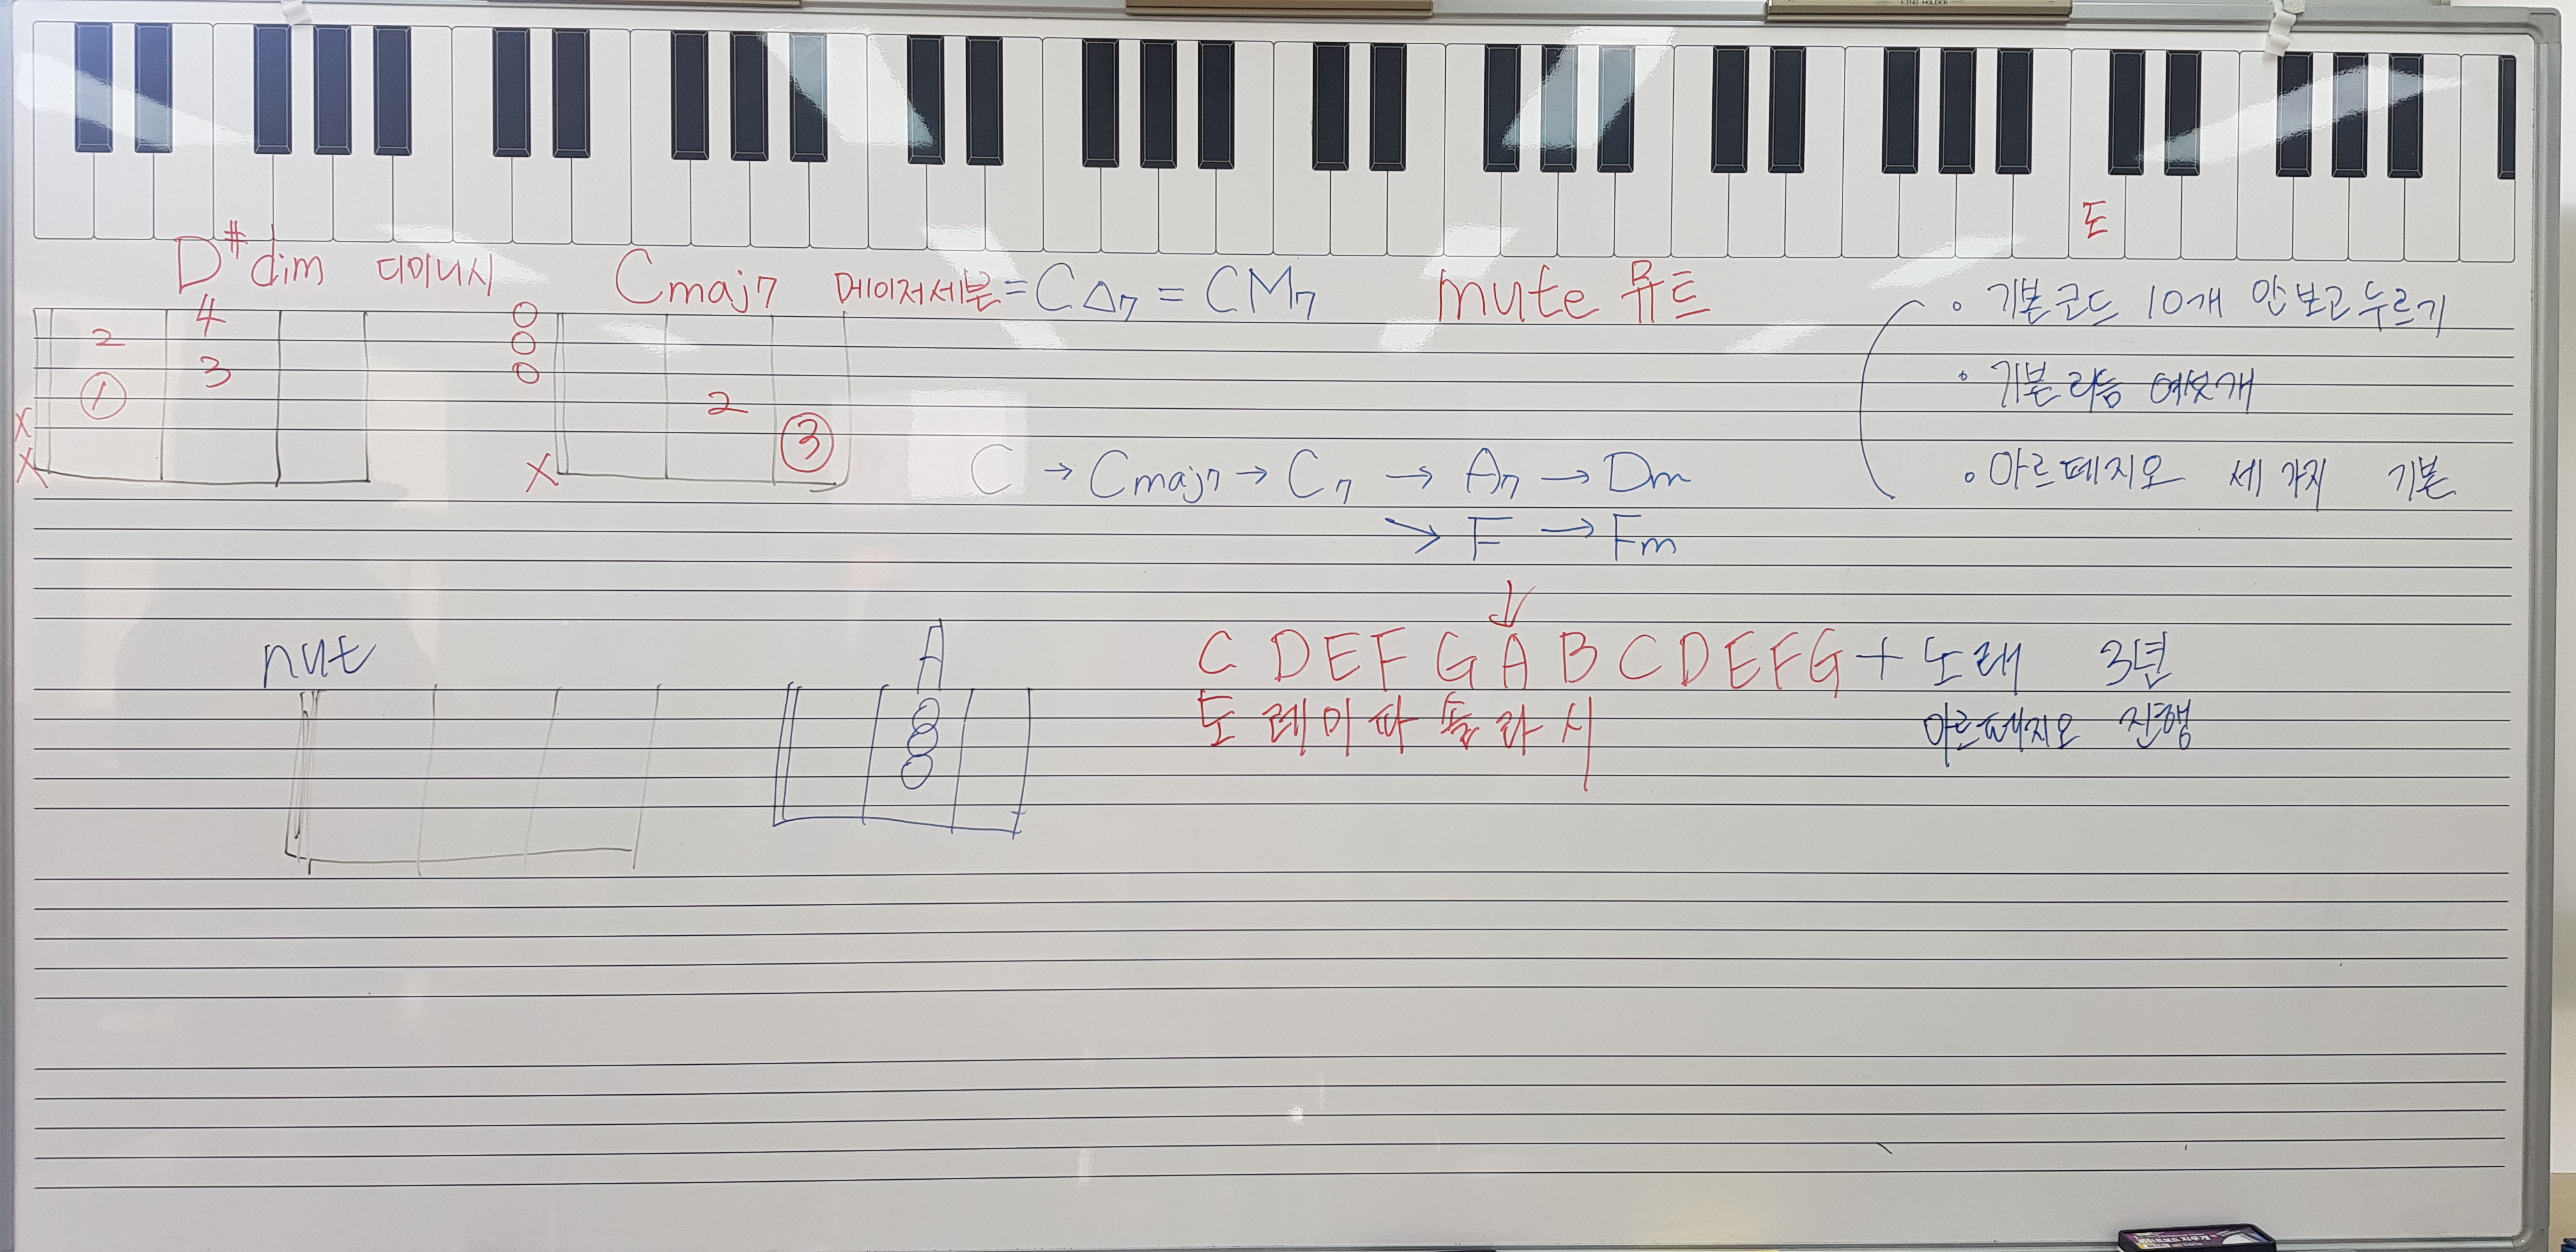 도
D#dim 디미니시
Cmaj7 메이저세븐 = C△7 = CM7
mute 뮤트
4
2
3
①
X
X
O
O
O
2
③
X
• 기본코드 10개 안보고누르기
• 기본리듬 여섯개
• 아르페지오 세 가지 기본
C → Cmaj7 → C7 → A7 → Dm
↘ F → Fm
↓
nut
A
C D E F G A B C D E F G + 노래 3년
도 레 미 파 솔 라 시
아르페지오 진행